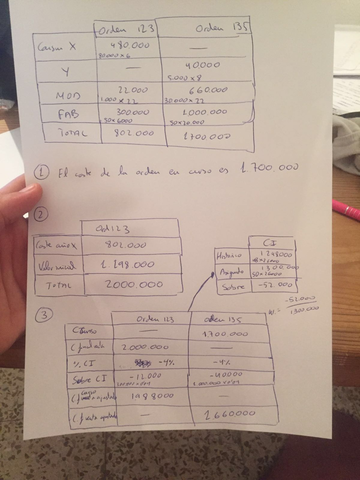 Orden 123 Orden 135
Consum X 480.000 —
80.000 x 6
Y — 40.000
5.000 x 8
MOD 22.000 660.000
1.000 x 22 30.000 x 22
FAB 300.000 1.000.000
TOTAL 802.000 1.700.000
① El coste de la orden en curso es 1.700.000
②
Ord 123
Coste 802.000
Valor inicial 1.198.000
TOTAL 2.000.000
CI
Histórico 1.248.000
Asignado 1.300.000
Sobre -52.000
-52.000
1.300.000
③ Orden 123 Orden 135
C curso — 1.700.000
2.000.000 —
% CI -4% -4%
Sobre CI -12.000 -40.000
1.988.000 —
— 1.660.000